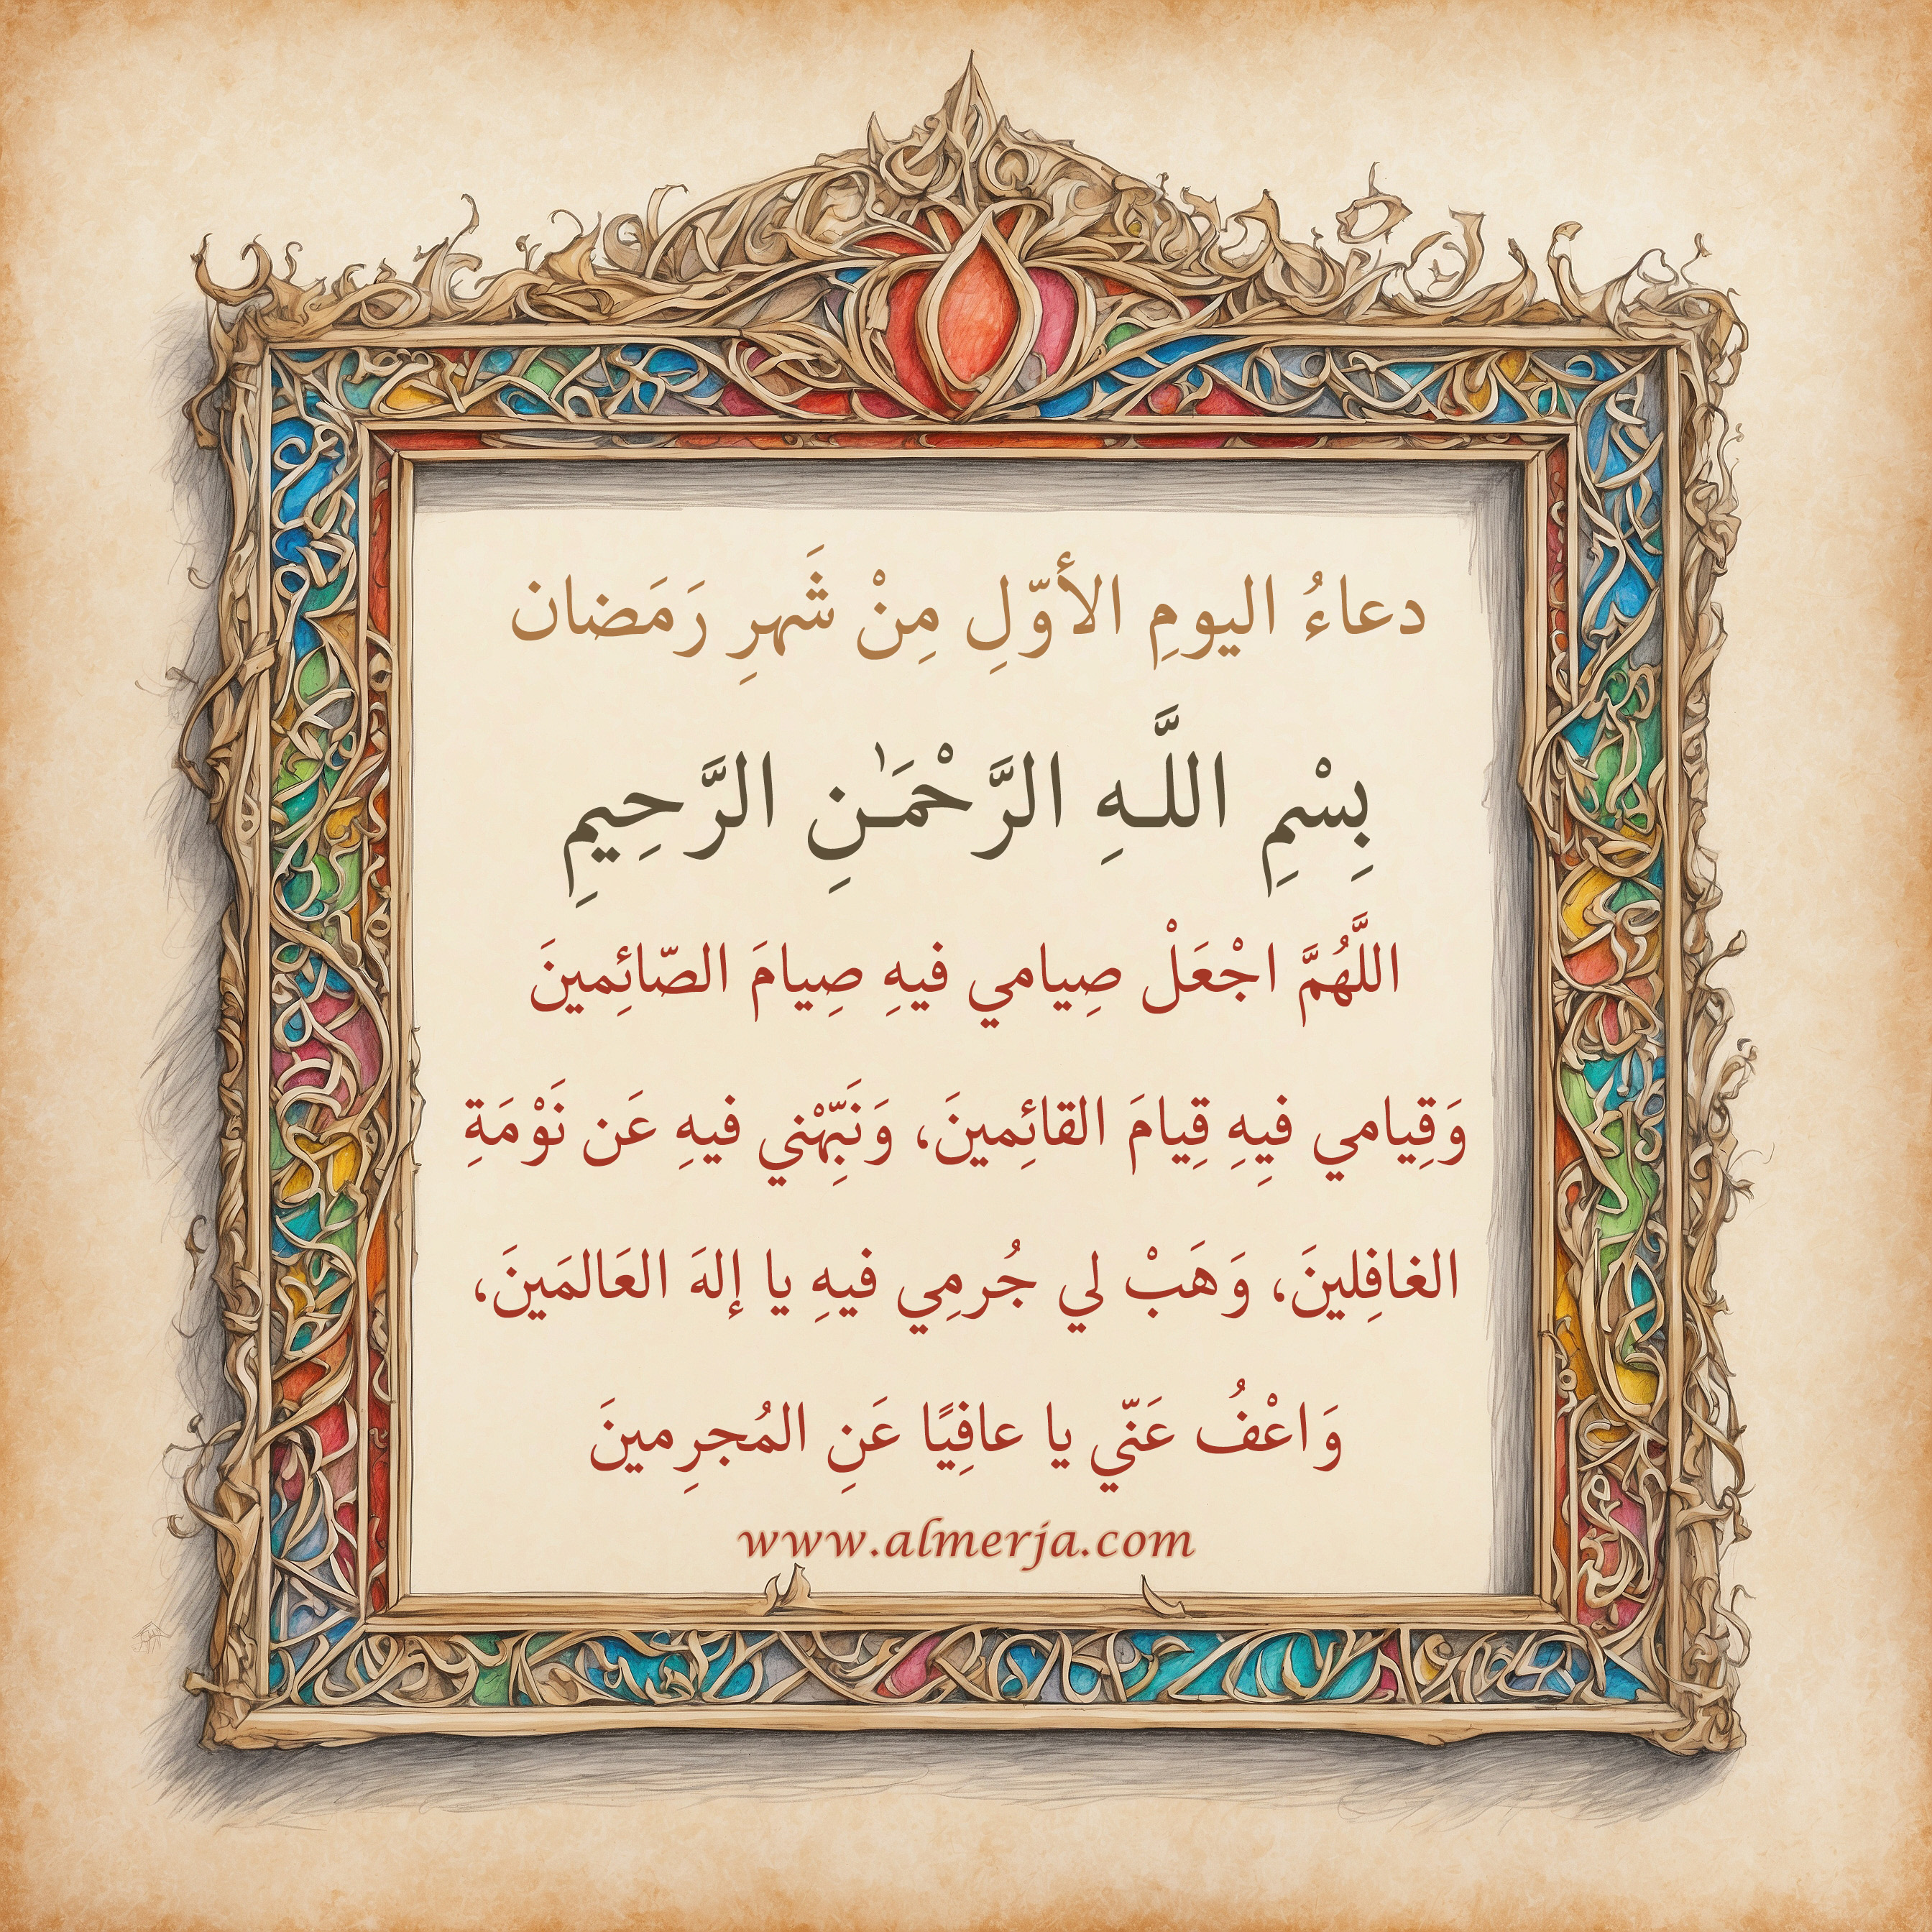 دعاءُ اليومِ الأوّلِ مِنْ شَهرِ رَمَضان
بِسْمِ اللَّـهِ الرَّحْمَـٰنِ الرَّحِيمِ
اللَّهُمَّ اجْعَلْ صِيامي فيهِ صِيامَ الصّائِمينَ
وَقِيامي فيِهِ قِيامَ القائِمينَ، وَنَبِّهْني فيهِ عَن نَوْمَةِ
الغافِلينَ، وَهَبْ لي جُرمِي فيهِ يا إلهَ العَالمَينَ،
وَاعْفُ عَنّي يا عافِيًا عَنِ المُجرِمينَ
www.almerja.com